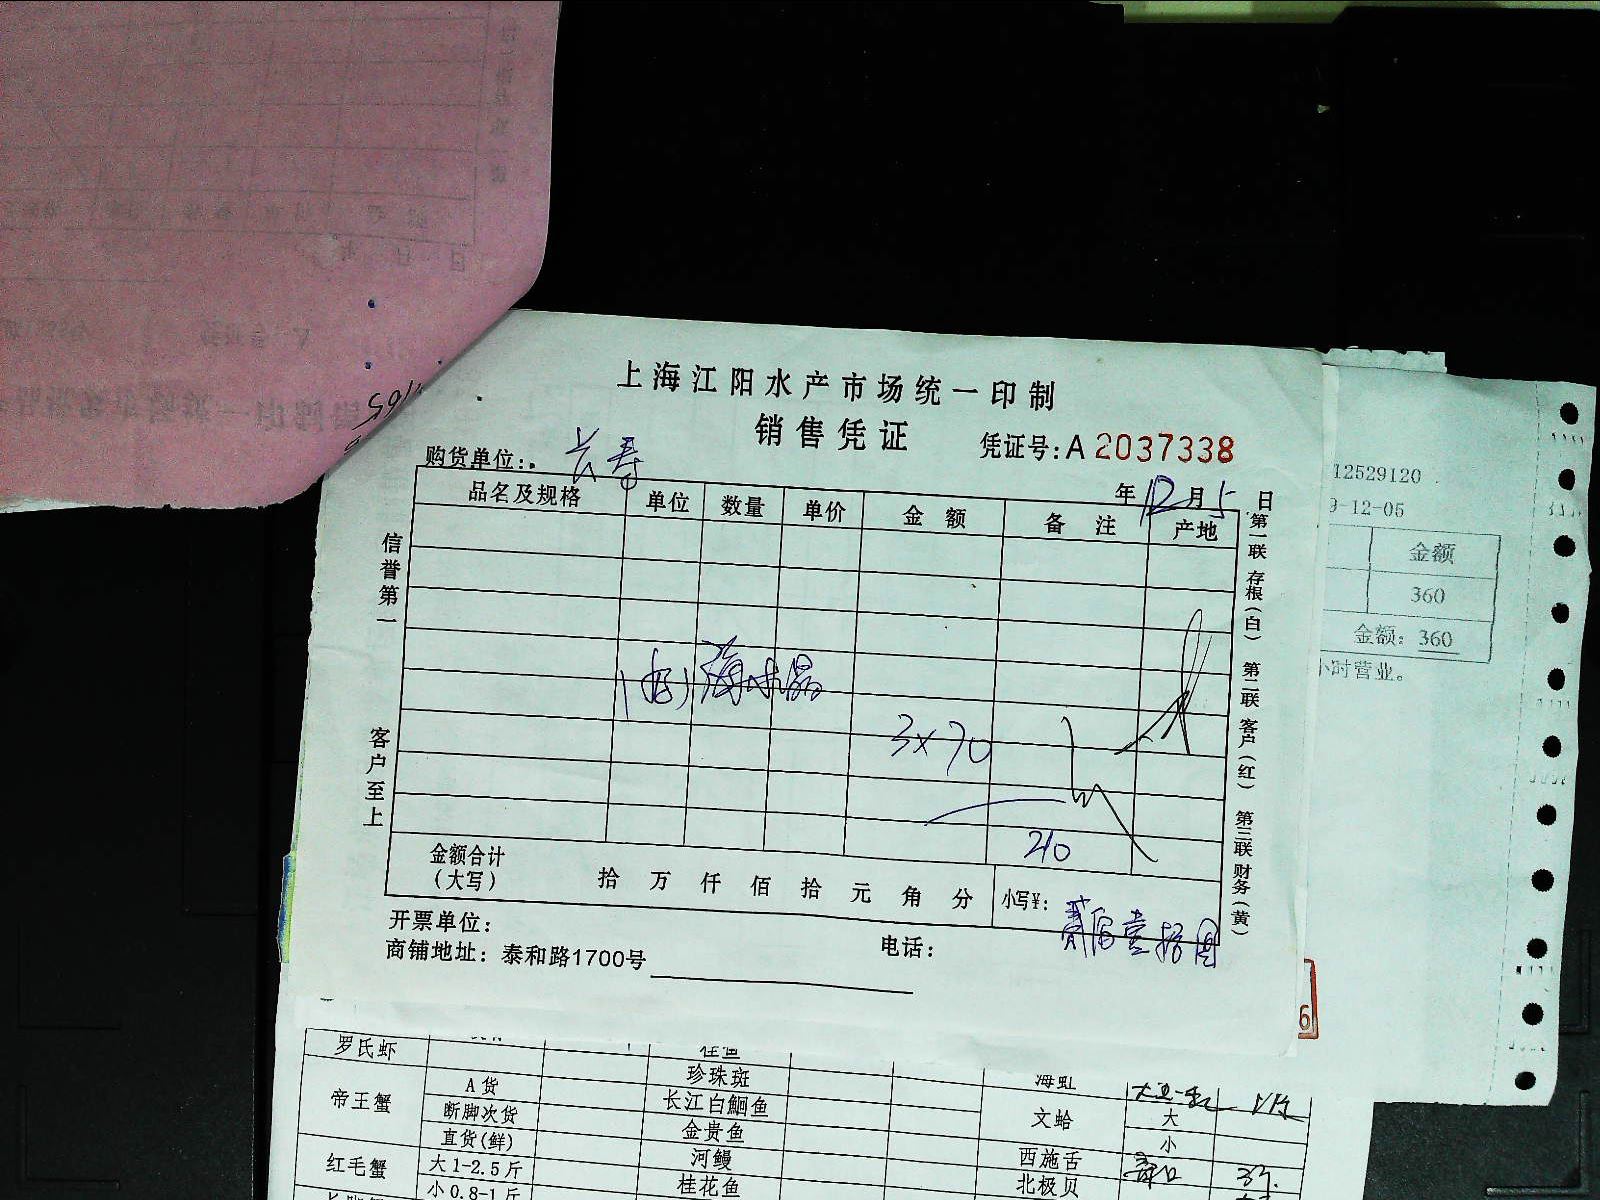 上海江阳水产市场统一印制
销售凭证
凭证号:A 2037338
购货单位: 长寿
年 12 月 5 日
品名及规格 单位 数量 单价 金 额 备 注 产地
海水晶
3×70
210
金额合计
(大写) 拾 万 仟 佰 拾 元 角 分 小写¥: 贰佰壹拾圆
开票单位:
商铺地址: 泰和路1700号 电话:
信誉第一
客户至上
第一联 存根(白) 第二联 客户(红) 第三联 财务(黄)
12529120
9-12-05
金额
360
金额: 360
小时营业。
6
罗氏虾 桂鱼 海虹
帝王蟹 A货 珍珠斑
断脚次货 长江白鮰鱼 文蛤 大
直货(鲜) 金贵鱼 小
红毛蟹 大1-2.5斤 河鳗 西施舌
小0.8-1斤 桂花鱼 北极贝